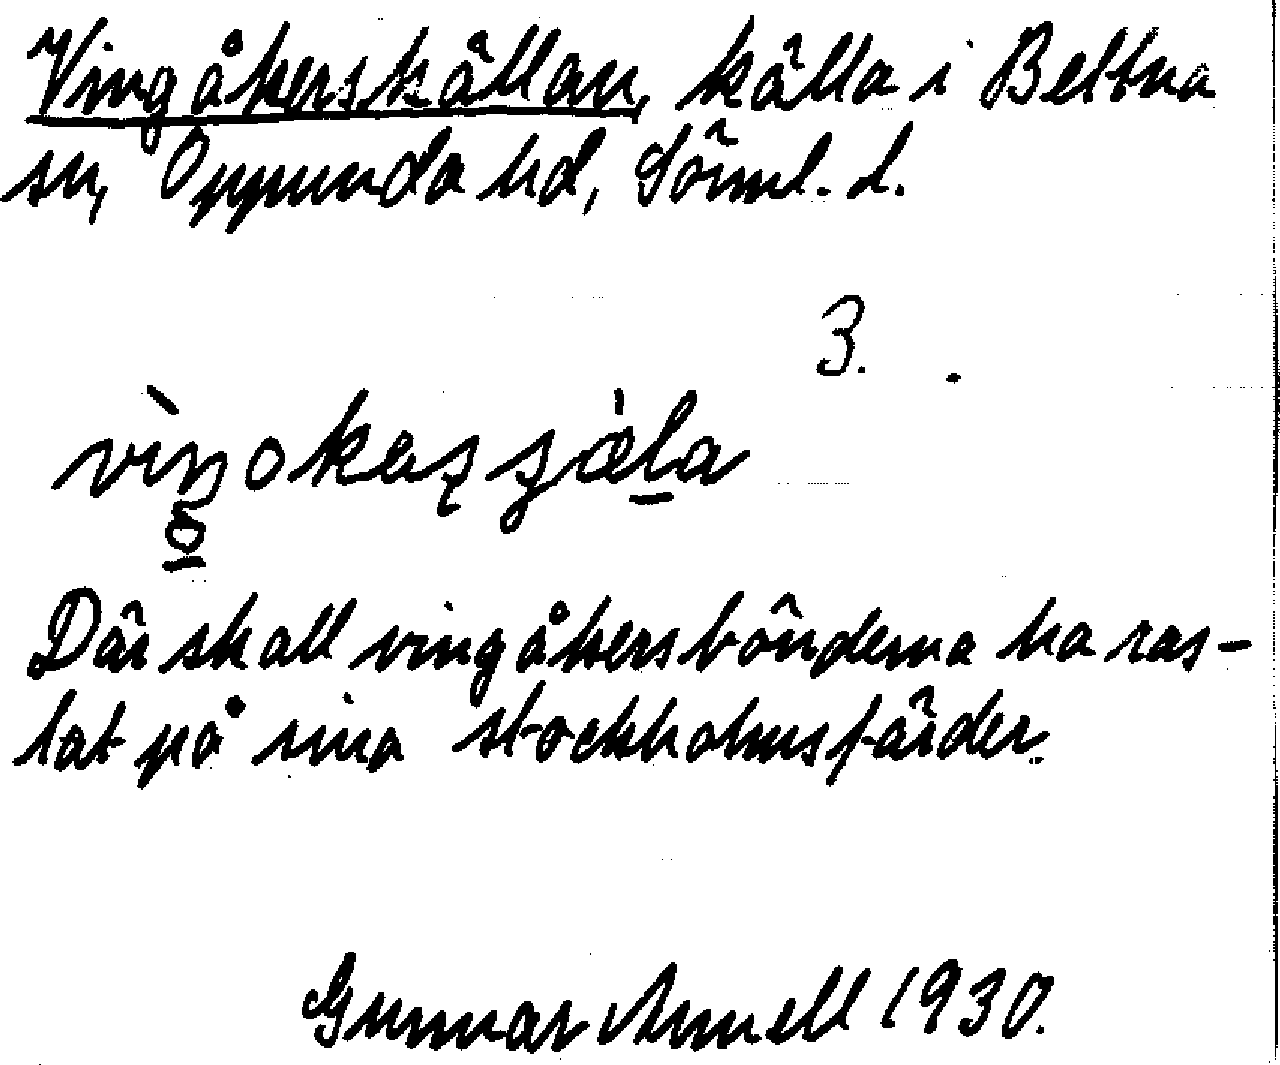 Vingåkerskällan, källa i Bettna
sn, Oppunda hd, Söml. l.
3.
Där skall vingåkersbönderna ha ras-
tat på sina stockholmsfärder.
Gunnar Arnell 1930.